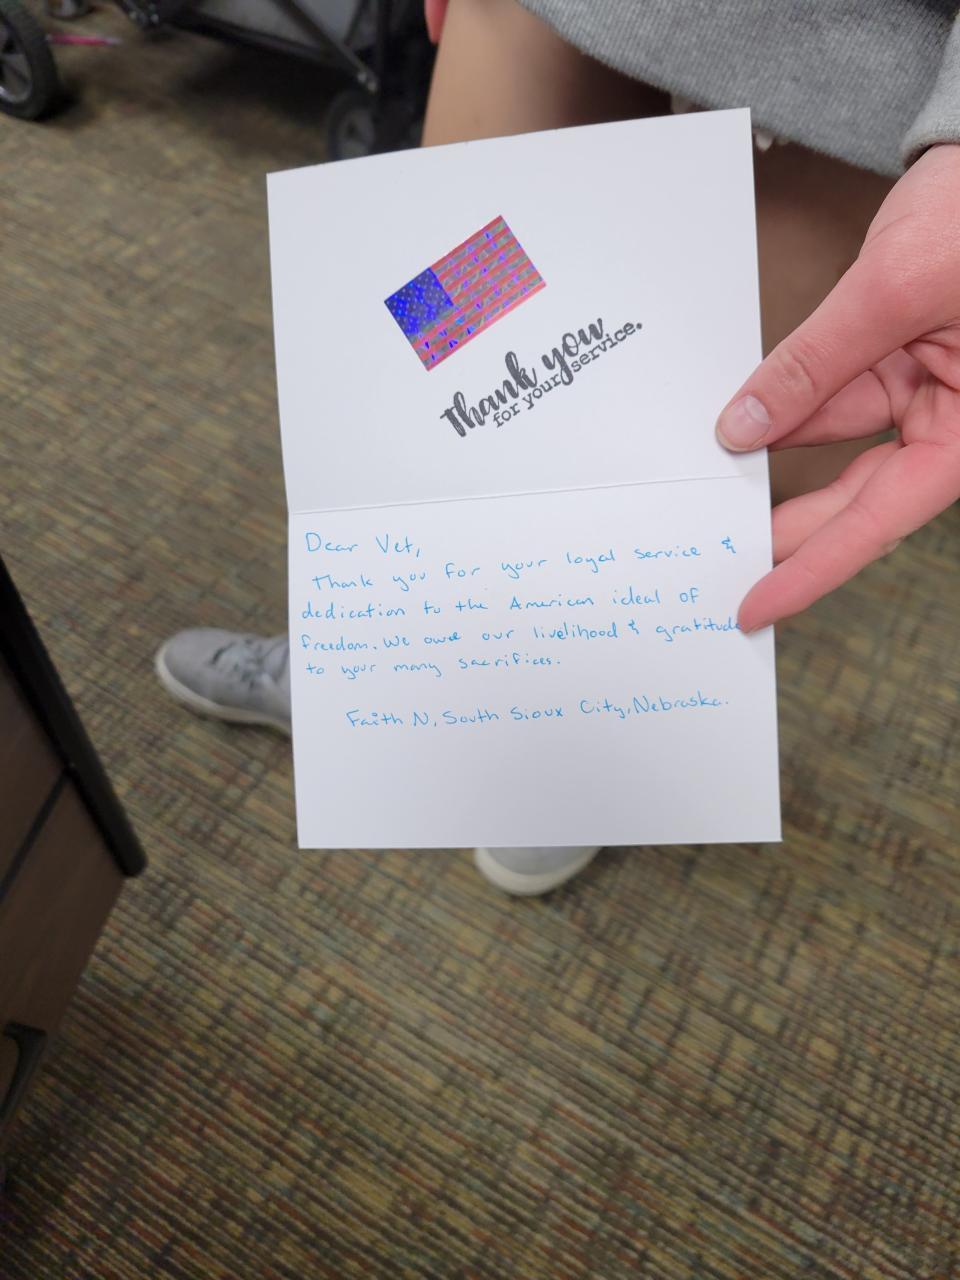 Thank you
for your service.
Dear Vet,
Thank you for your loyal service &
dedication to the American ideal of
freedom. We owe our livelihood & gratitude
to your many sacrifices.
Faith N, South Sioux City, Nebraska.